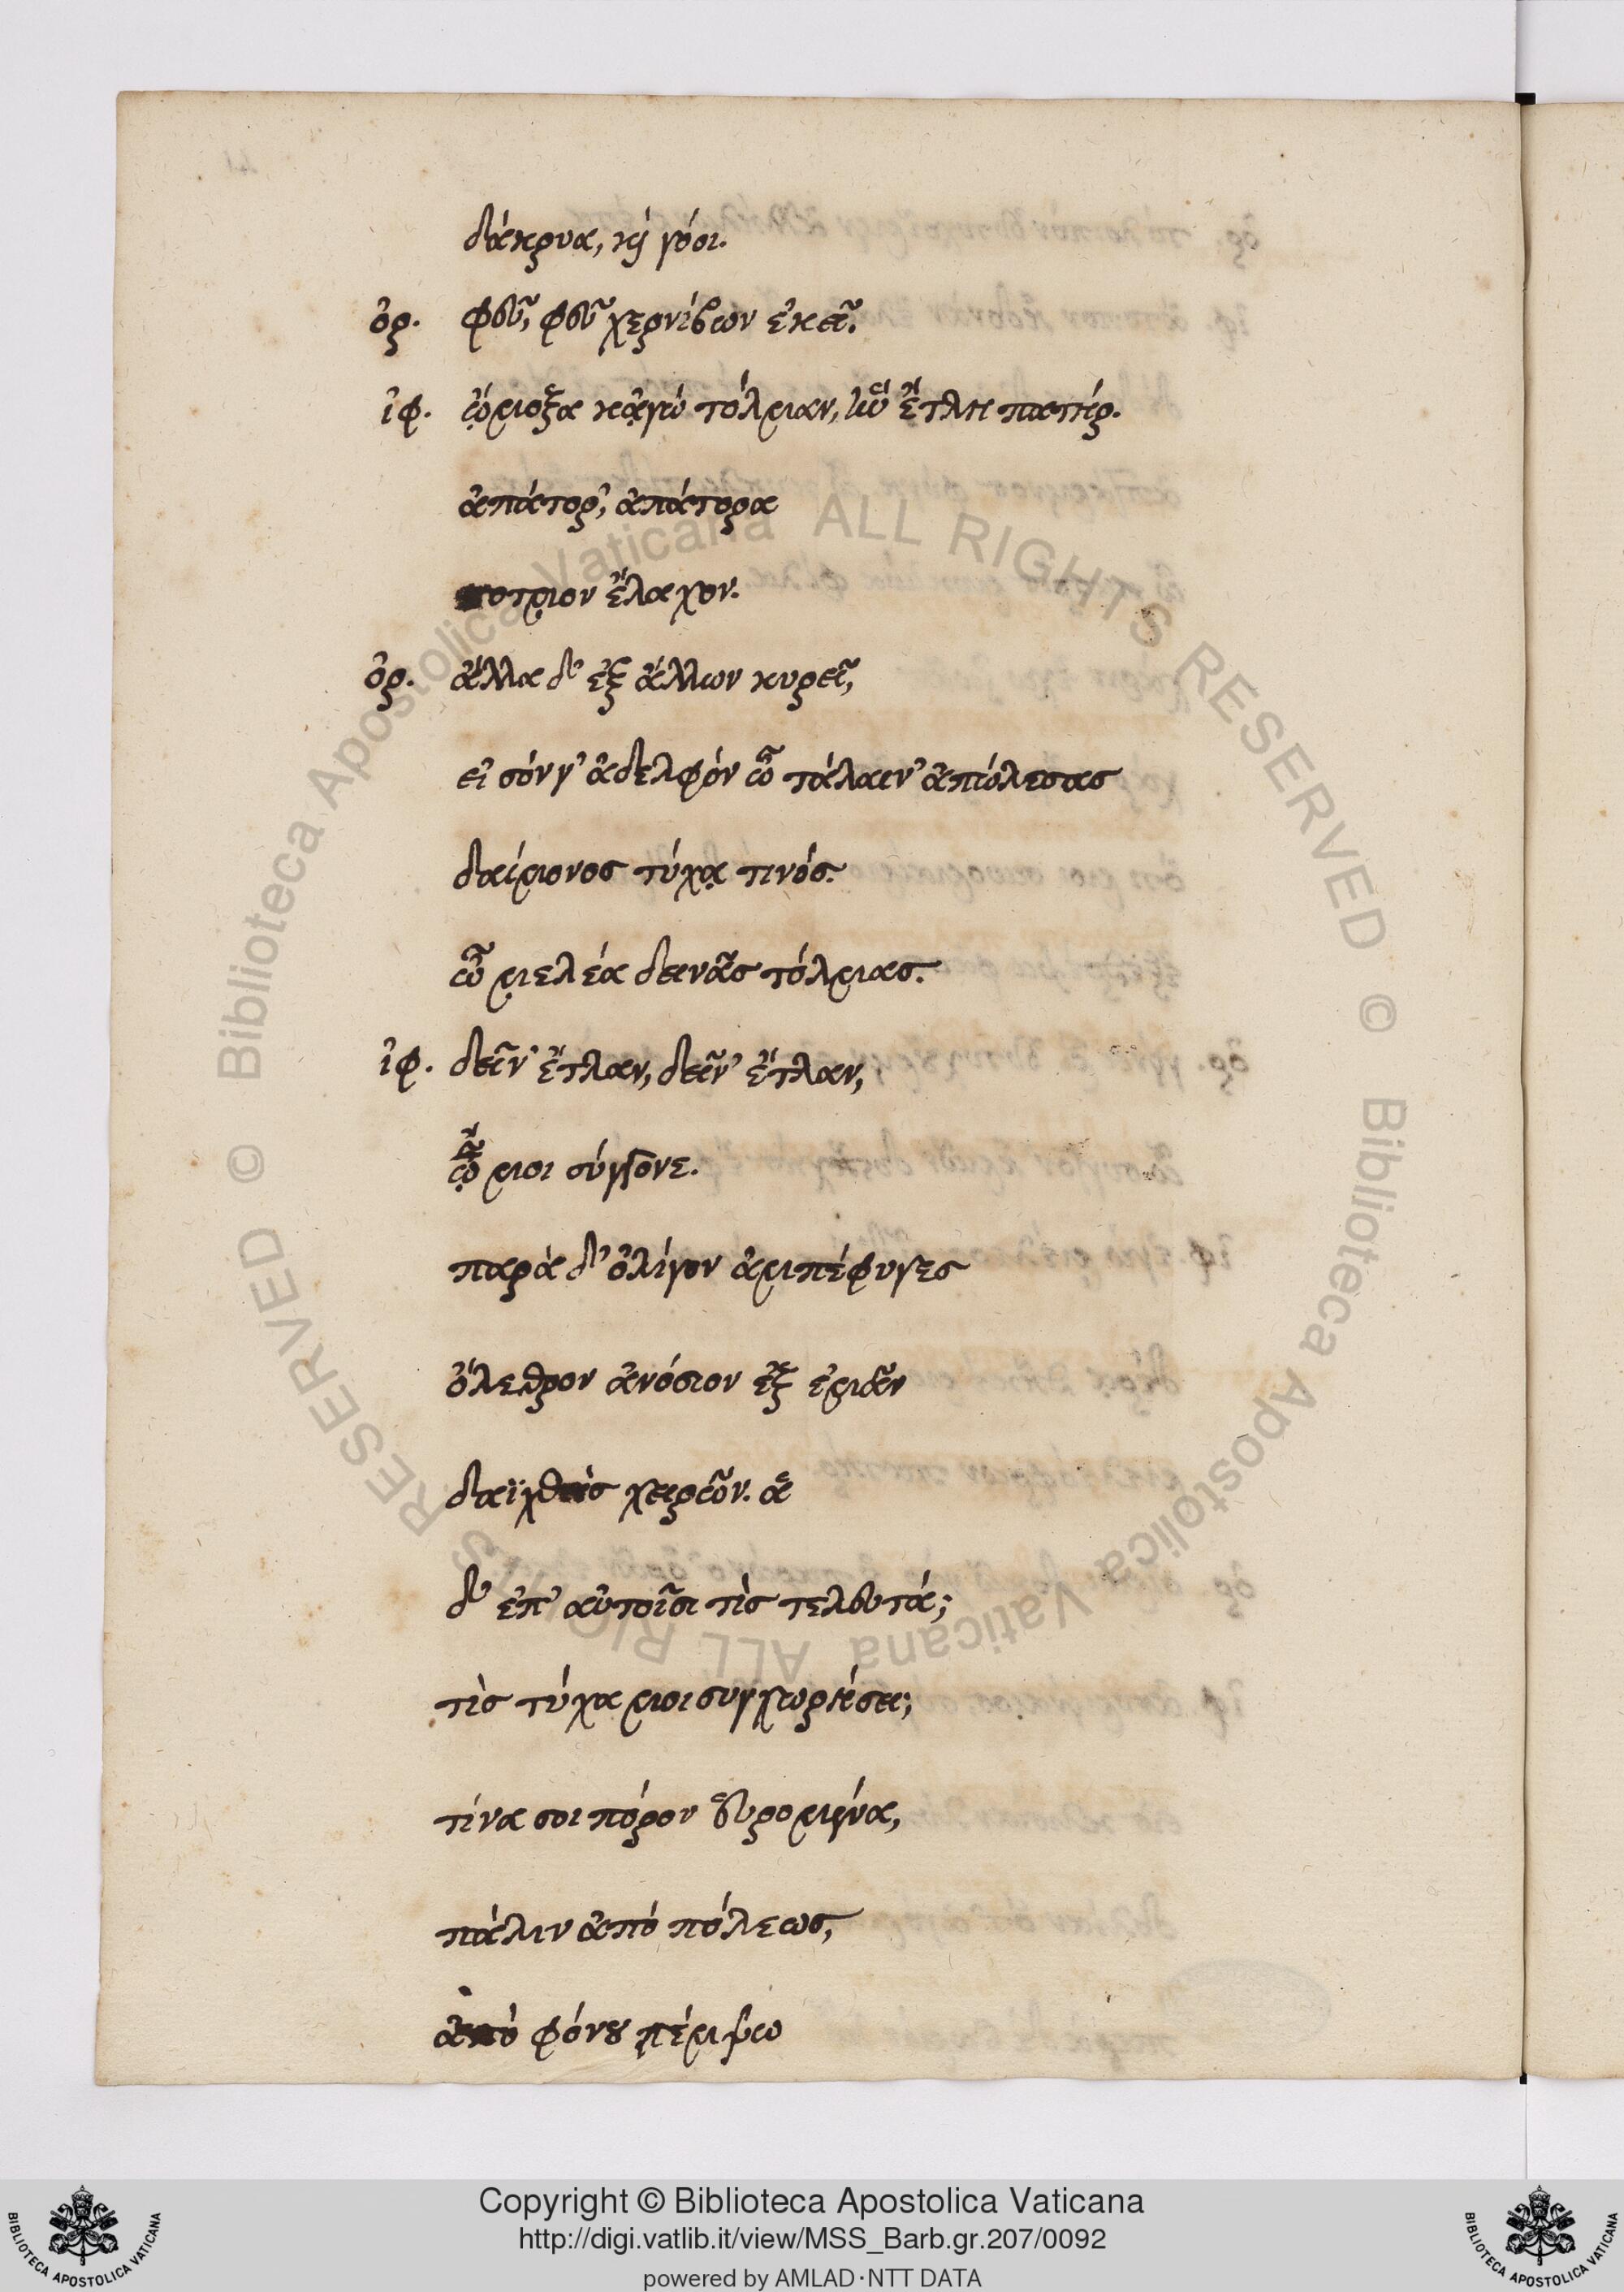 δάκρυα, κὶ γόοι.
ὀρ. φεῦ, φεῦ χερνίβων ἐκεῖ.
ἰφ. ᾤμοξα κᾀγὼ τόλμαν, ἣν ἔτλη πατήρ.
ἀπάτορ', ἀπάτορα
ποτμον ἔλαχον.
ὀρ. ἄλλα δ' ἐξ ἄλλων κυρεῖ,
εἰ σόν γ' ἀδελφόν ὦ τάλαιν' ἀπώλεσας
δαίμονος τύχᾳ τινός.
ὦ μελέα δεινᾶς τόλμας.
ἰφ. δείν' ἔτλαν, δείν' ἔτλαν,
ᾤμοι σύγγονε.
παρὰ δ' ὀλίγον ἀμπέφυγες
ὄλεθρον ἀνόσιον ἐξ ἐμᾶν
δαϊχθεὶς χειρῶν. ἃ
δ' ἐπ' αὐτοῖσι τὶς τελευτά;
τὶς τύχα μοι συγχωρήσει;
τίνα σοι πόρον εὑρομένα,
πάλιν ἀπὸ πόλεως,
ἀπὸ φόνου πέμψω
Copyright © Biblioteca Apostolica Vaticana
http://digi.vatlib.it/view/MSS_Barb.gr.207/0092
powered by AMLAD·NTT DATA
BIBLIOTECA APOSTOLICA VATICANA
BIBLIOTECA APOSTOLICA VATICANA
Biblioteca Apostolica Vaticana ALL RIGHTS RESERVED ©
Biblioteca Apostolica Vaticana ALL RIGHTS RESERVED ©